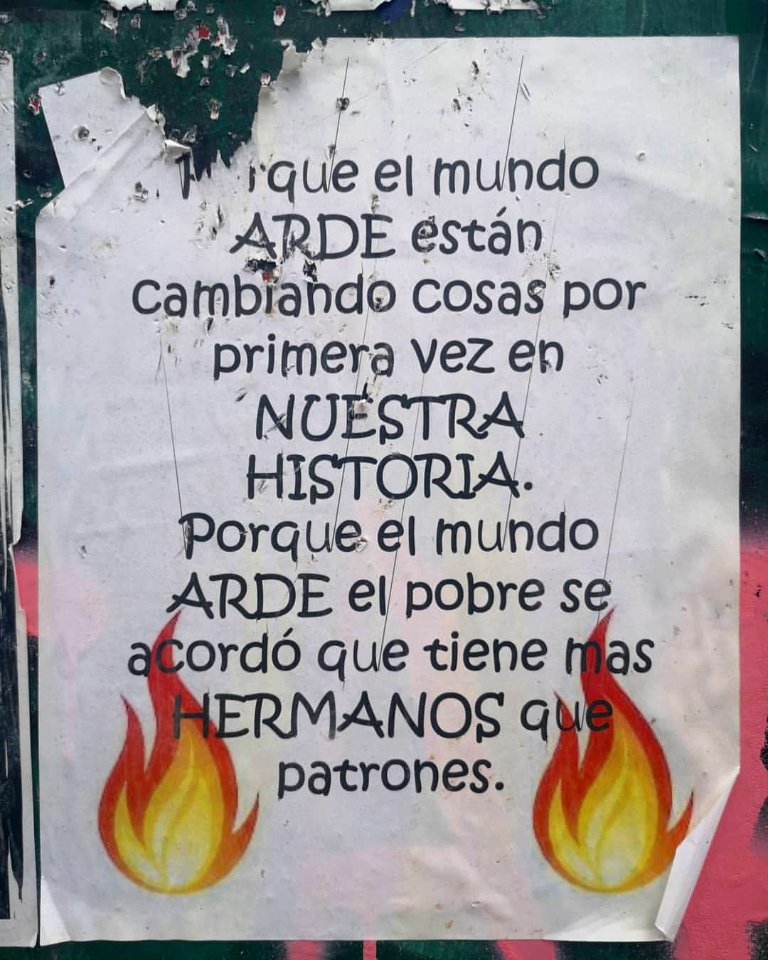 Porque el mundo
ARDE están
cambiando cosas por
primera vez en
NUESTRA
HISTORIA.
Porque el mundo
ARDE el pobre se
acordó que tiene mas
HERMANOS que
patrones.